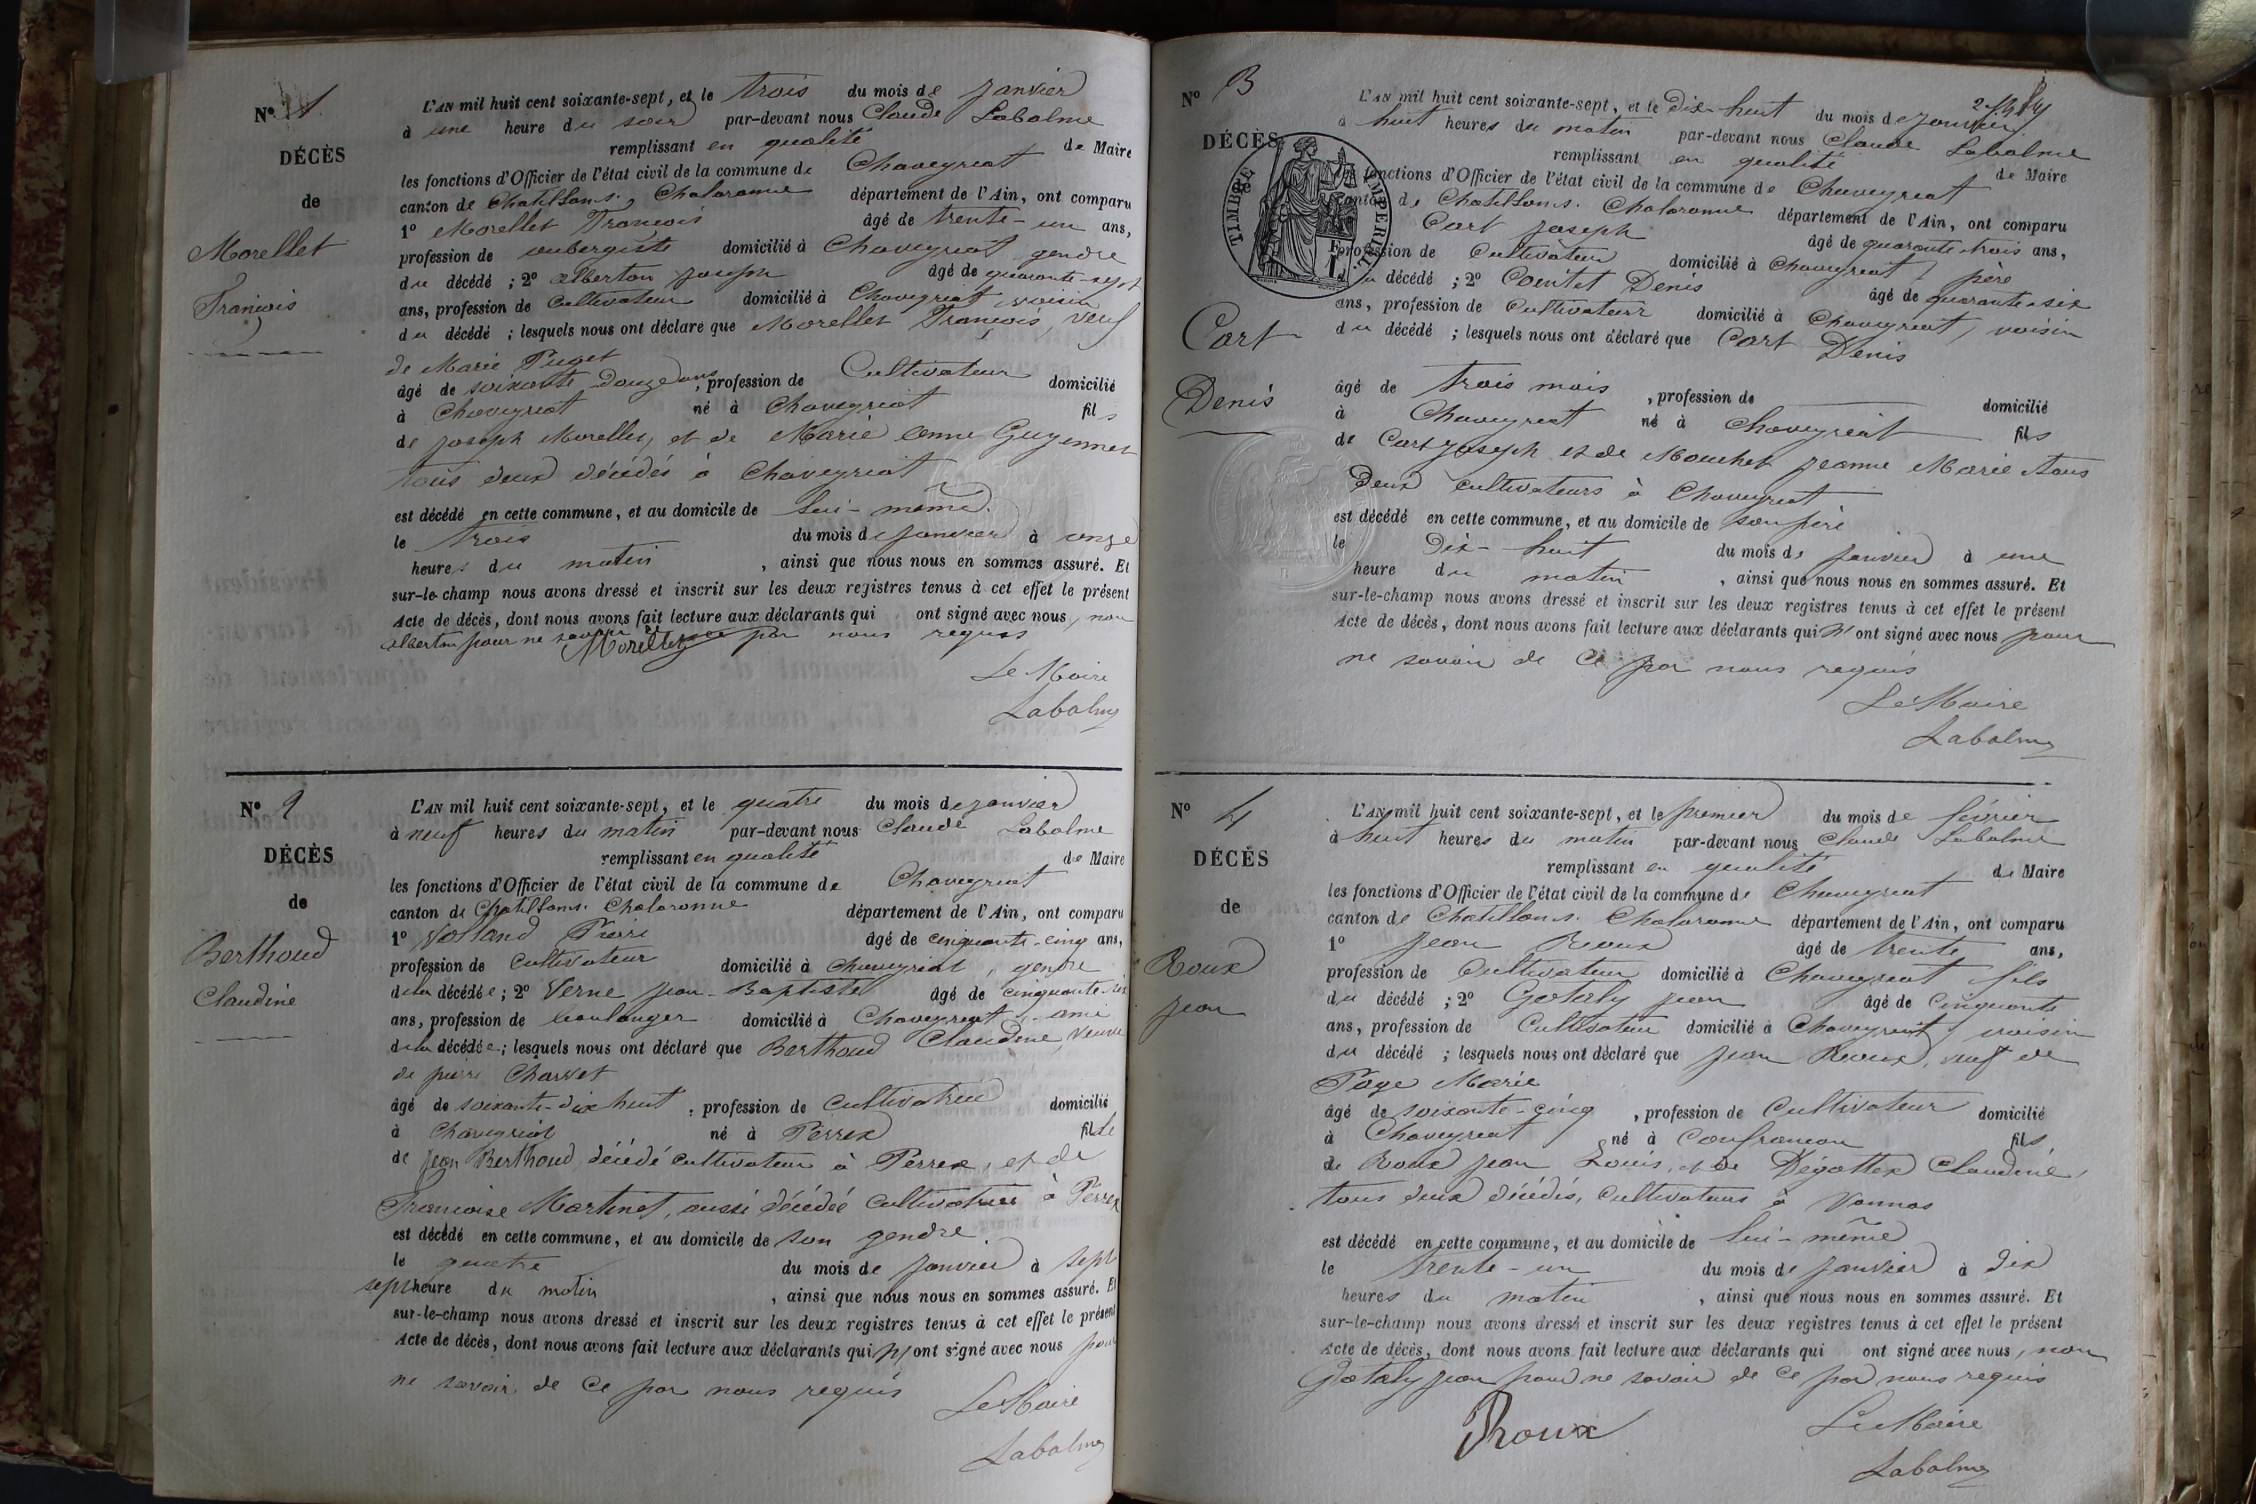 N° 1
DÉCÈS
de
Morellet
François
L'AN mil huit cent soixante-sept, et le trois du mois de janvier
à une heure du soir par-devant nous Claude Labalme
remplissant en qualité de Maire
les fonctions d'Officier de l'état civil de la commune de Chaveyriat
canton de Chatillon s. Chalaronne département de l'Ain, ont comparu
1° Morellet François âgé de trente-un ans,
profession de aubergiste domicilié à Chaveyriat gendre
du décédé ; 2° Alberton joseph âgé de quarante-sept
ans, profession de Cultivateur domicilié à Chaveyriat, voisin
du décédé ; lesquels nous ont déclaré que Morellet François, veuf
de Marie Puget
âgé de soixante Douze ans, profession de Cultivateur domicilié
à Chaveyriat né à Chaveyriat fils
de joseph Morellet, et de Marie Anne Guyennet
tous deux décédés à Chaveyriat
est décédé en cette commune, et au domicile de lui-même.
le trois du mois de janvier à onze
heures du matin , ainsi que nous nous en sommes assuré. Et
sur-le-champ nous avons dressé et inscrit sur les deux registres tenus à cet effet le présent
Acte de décès, dont nous avons fait lecture aux déclarants qui ont signé avec nous, non
alberton pour ne savoir par nous requis
Morellet
Le Maire
Labalme
N° 2
DÉCÈS
de
Berthoud
Claudine
L'AN mil huit cent soixante-sept, et le quatre du mois de janvier
à neuf heures du matin par-devant nous Claude Labalme
remplissant en qualité de Maire
les fonctions d'Officier de l'état civil de la commune de Chaveyriat
canton de Chatillon s. Chalaronne département de l'Ain, ont comparu
1° Volland Pierre âgé de cinquante-cinq ans,
profession de Cultivateur domicilié à Chaveyriat, gendre
de la décédée ; 2° Verne jean-Baptiste âgé de cinquante-six
ans, profession de boulanger domicilié à Chaveyriat, ami
de la décédée ; lesquels nous ont déclaré que Berthoud Claudine, veuve
de pierre Charvet
âgé de soixante-dix huit , profession de Cultivatrice domicilié
à Chaveyriat né à Perrex fille
de jean Berthoud, décédé cultivateur à Perrex, et de
Françoise Martinet, aussi décédée Cultivatrice à Perrex
est décédé en cette commune, et au domicile de son gendre.
le quatre du mois de janvier à sept
sept heure du matin , ainsi que nous nous en sommes assuré. Et
sur-le-champ nous avons dressé et inscrit sur les deux registres tenus à cet effet le présent
Acte de décès, dont nous avons fait lecture aux déclarants qui n'ont signé avec nous pour
ne savoir de ce par nous requis
Le Maire
Labalme
N° 3
DÉCÈS
de
TIMBRE IMPERIAL
Cart
Denis
L'AN mil huit cent soixante-sept, et le Dix-huit du mois de janvier
à huit heures du matin par-devant nous Claude Labalme
remplissant en qualité de Maire
les fonctions d'Officier de l'état civil de la commune de Chaveyriat
canton de Chatillon s. Chalaronne département de l'Ain, ont comparu
1° Cart joseph âgé de quarante-trois ans,
profession de Cultivateur domicilié à Chaveyriat, père
du décédé ; 2° Cointet Denis âgé de quarante-six
ans, profession de Cultivateur domicilié à Chaveyriat, voisin
du décédé ; lesquels nous ont déclaré que Cart Denis
âgé de trois mois , profession de domicilié
à Chaveyriat né à Chaveyriat fils
de Cart joseph et de Mouchet jeanne Marie tous
Deux cultivateurs à Chaveyriat
est décédé en cette commune, et au domicile de son père
le Dix-huit du mois de janvier à une
heure du matin , ainsi que nous nous en sommes assuré. Et
sur-le-champ nous avons dressé et inscrit sur les deux registres tenus à cet effet le présent
Acte de décès, dont nous avons fait lecture aux déclarants qui n'ont signé avec nous pour
ne savoir de ce par nous requis
Le Maire
Labalme
N° 4
DÉCÈS
de
Roux
jean
L'AN mil huit cent soixante-sept, et le premier du mois de février
à huit heures du matin par-devant nous Claude Labalme
remplissant en qualité de Maire
les fonctions d'Officier de l'état civil de la commune de Chaveyriat
canton de Chatillon s. Chalaronne département de l'Ain, ont comparu
1° jean Roux âgé de trente ans,
profession de Cultivateur domicilié à Chaveyriat fils
du décédé ; 2° Gataly jean âgé de Cinquante
ans, profession de Cultivateur domicilié à Chaveyriat, voisin
du décédé ; lesquels nous ont déclaré que jean Roux, veuf de
Page Marie
âgé de soixante-cinq , profession de Cultivateur domicilié
à Chaveyriat né à Confrançon fils
de Roux jean Louis, et de Dégottex Claudine,
tous deux décédés, cultivateurs à Vonnas
est décédé en cette commune, et au domicile de lui-même
le trente-un du mois de janvier à dix
heures du matin , ainsi que nous nous en sommes assuré. Et
sur-le-champ nous avons dressé et inscrit sur les deux registres tenus à cet effet le présent
Acte de décès, dont nous avons fait lecture aux déclarants qui ont signé avec nous, non
Gataly jean pour ne savoir de ce par nous requis
Roux
Le Maire
Labalme